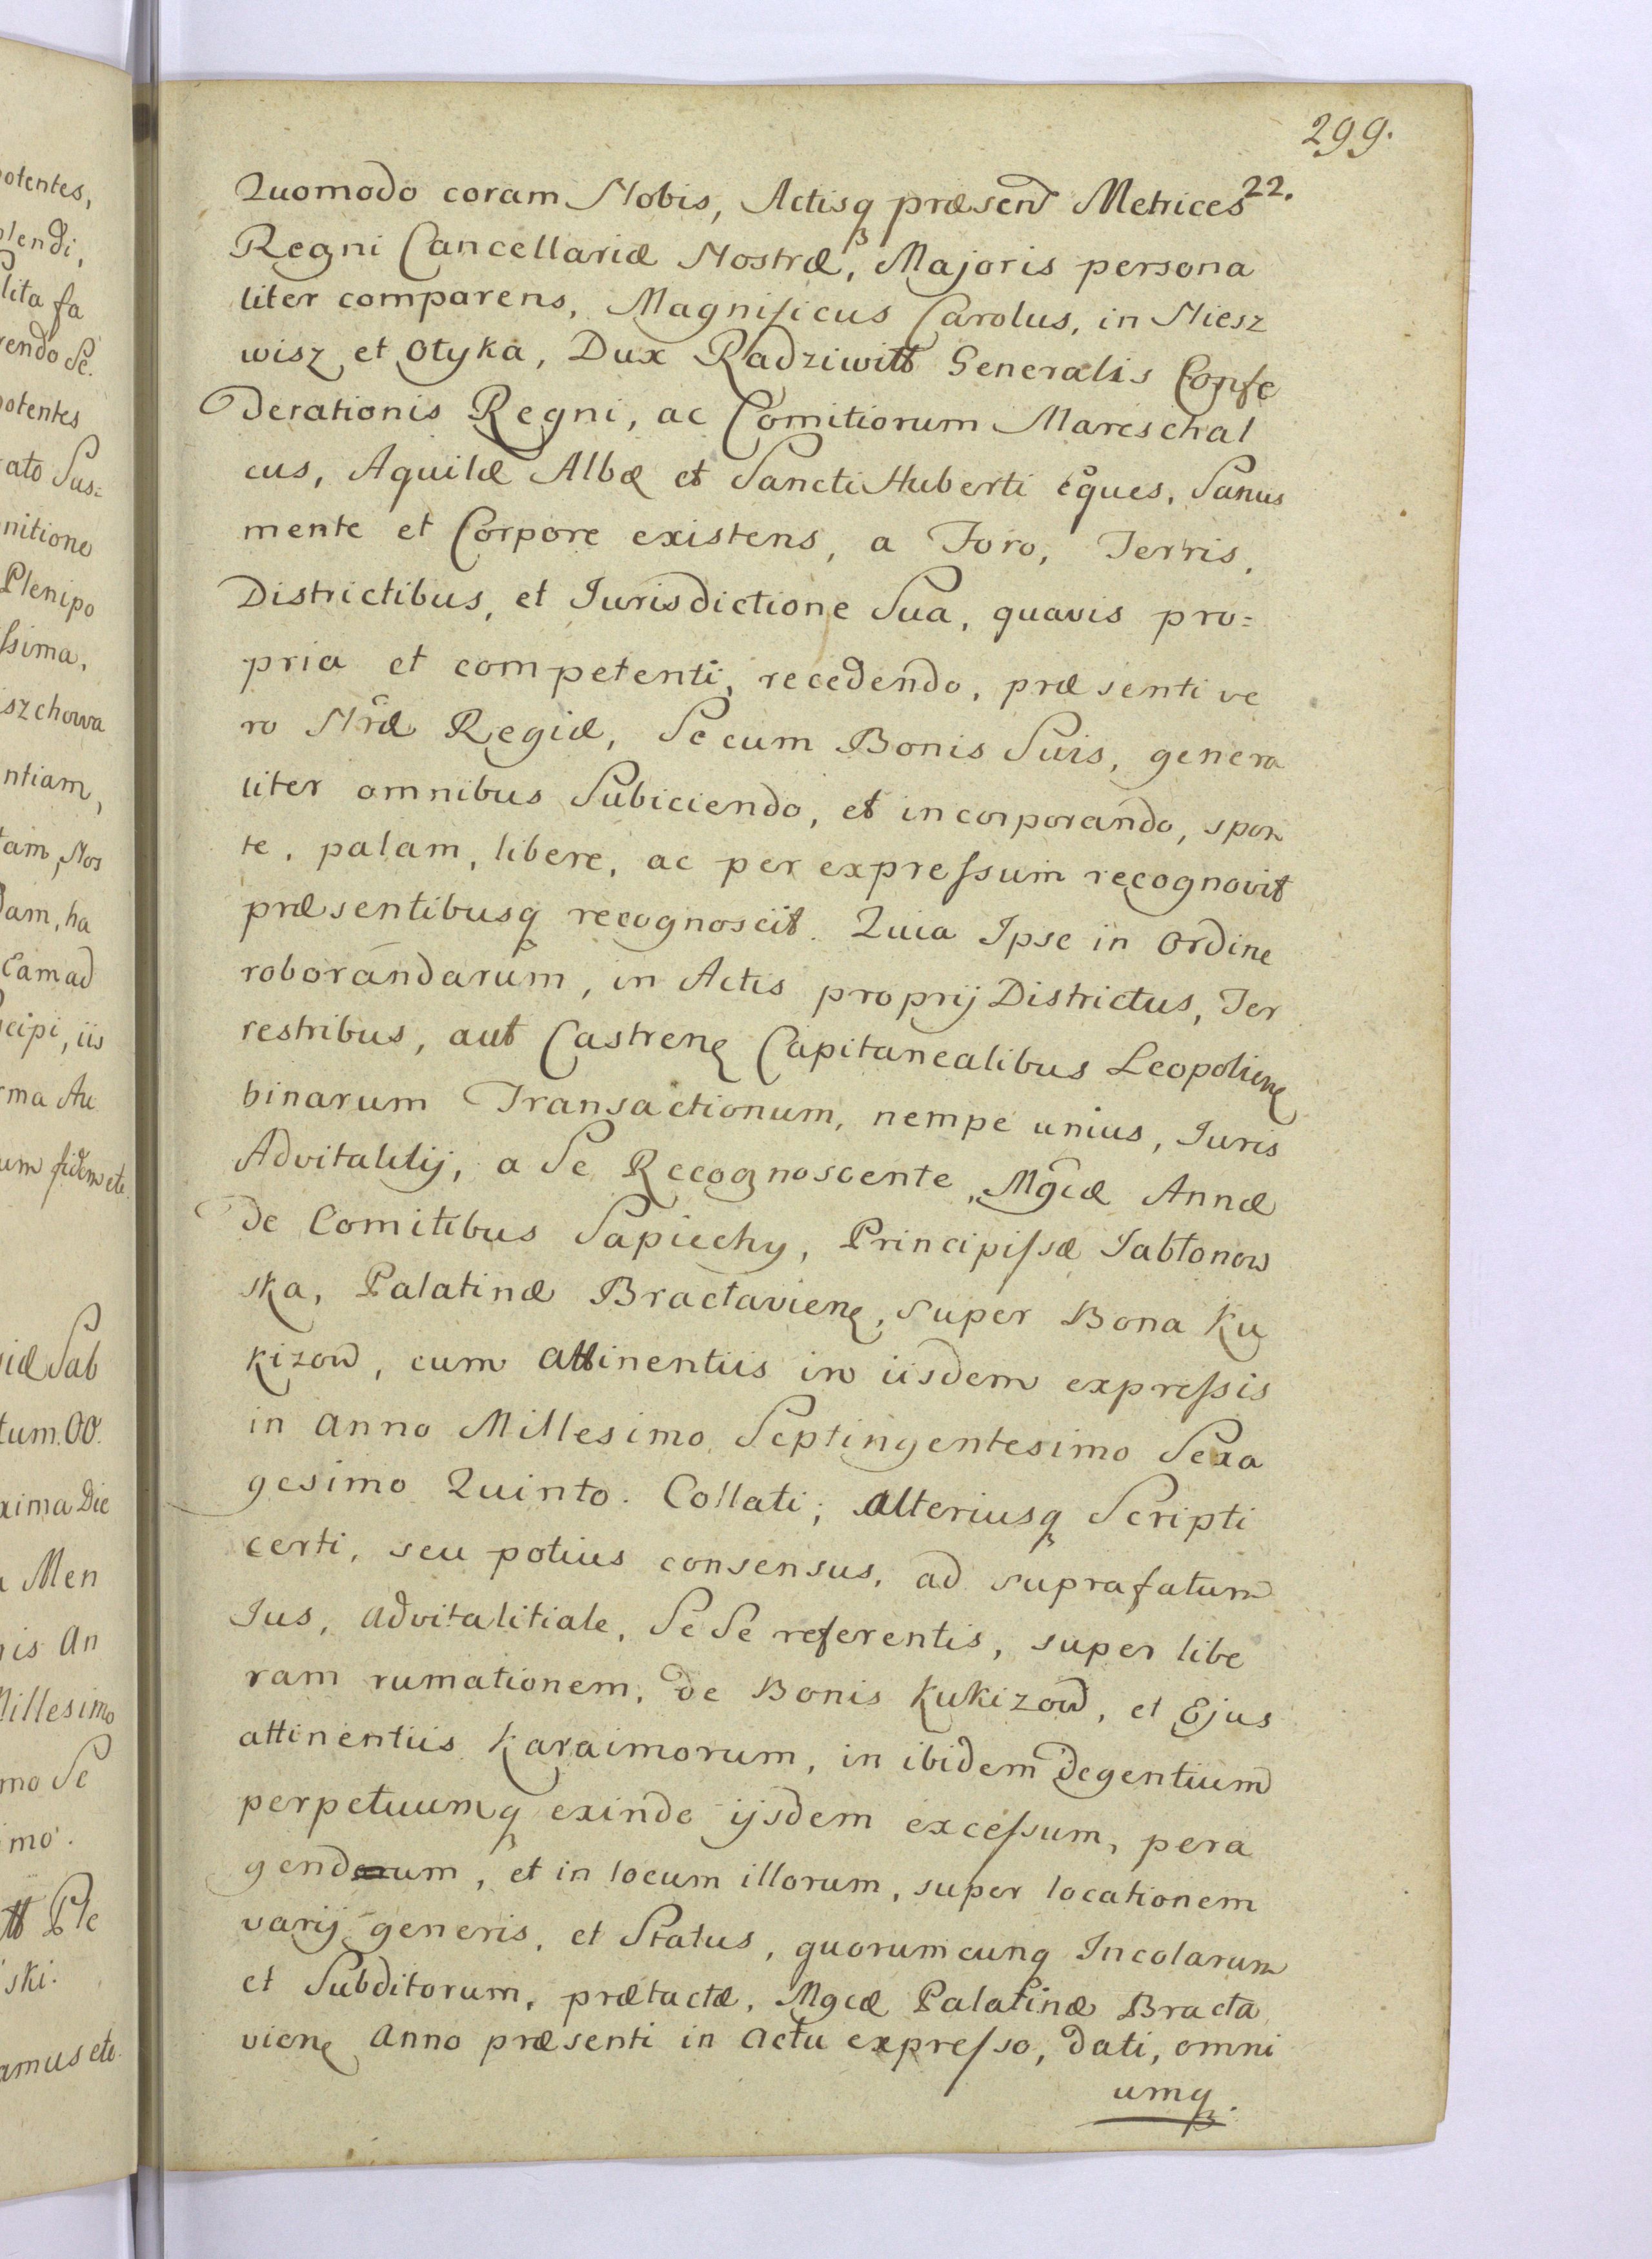 299.
22.
Quomodo coram Nobis, Actisq præsen Metrices
Regni Cancellariæ Nostræ, Majoris persona
liter comparens, Magnificus Carolus, in Niesz
wisz et Otyka, Dux Radziwiłł Generalis Confe
derationis Regni, ac Comitiorum Mareschal
cus, Aquilæ Albæ et Sancti Huberti Eques, Sanus
mente et Corpore existens, a Foro, Terris,
Districtibus, et Jurisdictione Sua, quavis pro=
pria et competenti, recedendo, præsenti ve
ro Nræ Regiæ, Se cum Bonis Suis, genera
liter omnibus Subiciendo, et incorporando, spon
te, palam, libere, ac per expressum recognovit
præsentibusq recognoscit. Quia Ipse in Ordine
roborandarum, in Actis proprij Districtus, Ter
restribus, aut Castren Capitanealibus Leopolien
binarum Transactionum, nempe unius, Juris
Advitalitij, a Se Recognoscente, Mgcæ Annæ
de Comitibus Sapiechy, Principissæ Jabłonow
ska, Palatinæ Bractavien, super Bona Ku
kizow, cum attinentiis in iisdem expressis
in Anno Millesimo Septingentesimo Sexa
gesimo Quinto. Collati; alteriusq Scripti
certi, seu potius consensus, ad suprafatum
Jus, advitalitiale, Se Se referentis, super libe
ram rumationem, de Bonis Kukizow, et Ejus
attinentiis Karaimorum, in ibidem degentium
perpetuumq exinde ijsdem excessum, pera
gendum, et in locum illorum, super locationem
varij generis, et Status, quorumcunq Incolarum
et Subditorum, prætactæ, Mgcæ Palatinæ Bracta
vien Anno præsenti in Actu expresso, dati, omni
umq.